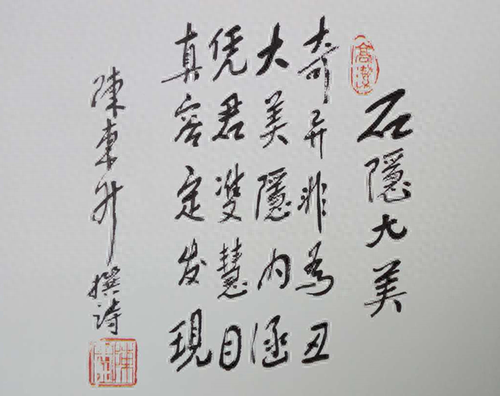 石隱大美
奇异非為丑
大美隱内涵
凭君雙慧目
真容定发現
陳東升
撰詩